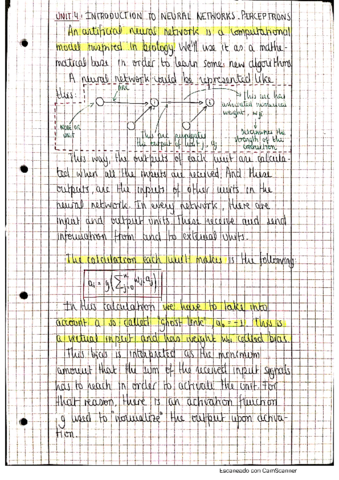 UNIT 4: INTRODUCTION TO NEURAL NETWORKS. PERCEPTRONS
An artificial neural network is a computational
model inspired in biology. We'll use it as a mathe-
matical base in order to learn some new algorithms
A neural network could be represented like
this:
arc
This arc has
associated numerical
weight, wji
neuron or
unit
This arc propagates
the output of unit j, aj
determines the
strength of the
connection
This way, the outputs of each unit are calcula-
ted when all the inputs are received. And these
outputs, are the inputs of other units in the
neural network. In every network, there are
input and output units. These receive and send
information from and to external units.
The calculation each unit makes is the following
ai = g(∑ⁿj=0 wji aj)
In this calculation we have to take into
account a so-called "ghost link" a0 = -1. This is
a virtual input and has weight w0i called bias.
This bias is interpreted as the minimum
amount that the sum of the received input signals
has to reach in order to activate the unit. For
that reason, there is an activation function
g used to "normalize" the output upon activa-
tion.
Escaneado con CamScanner